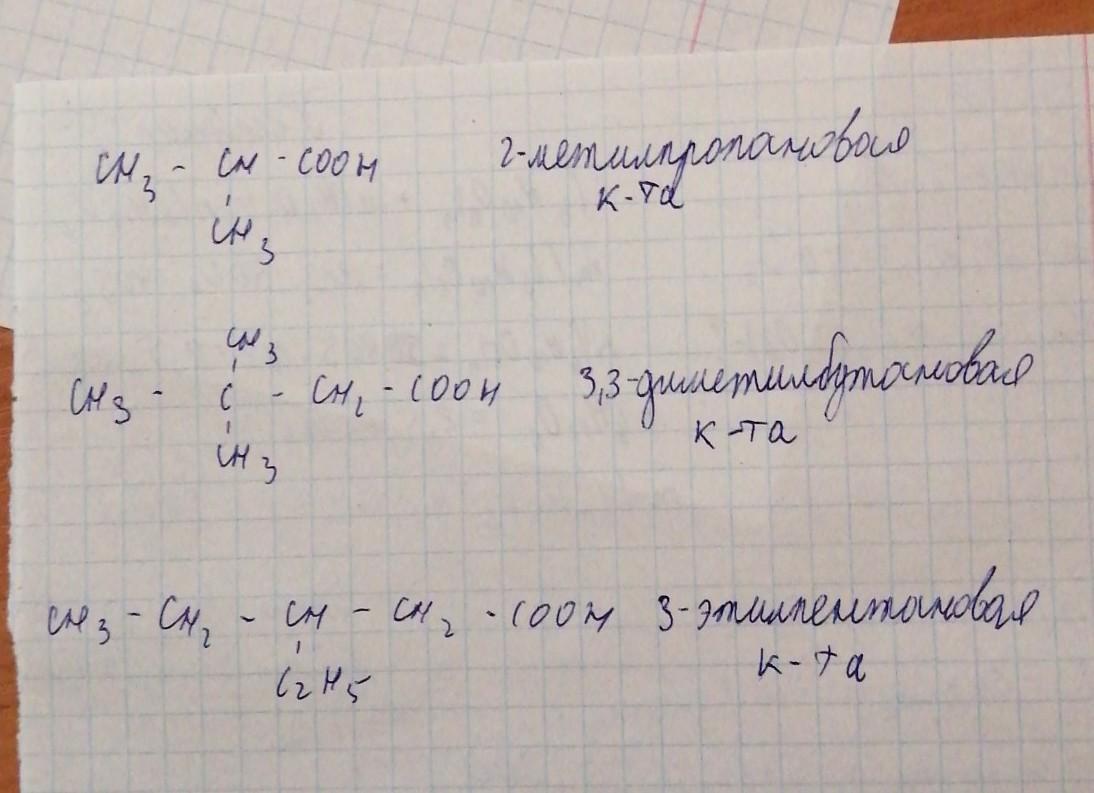 CH3 - CH - COOH 2-метилпропановая
к-та
CH3
CH3
CH3 - C - CH2 - COOH 3,3-диметилбутановая
к-та
CH3
CH3 - CH2 - CH - CH2 - COOH 3-этилпентановая
к-та
C2H5